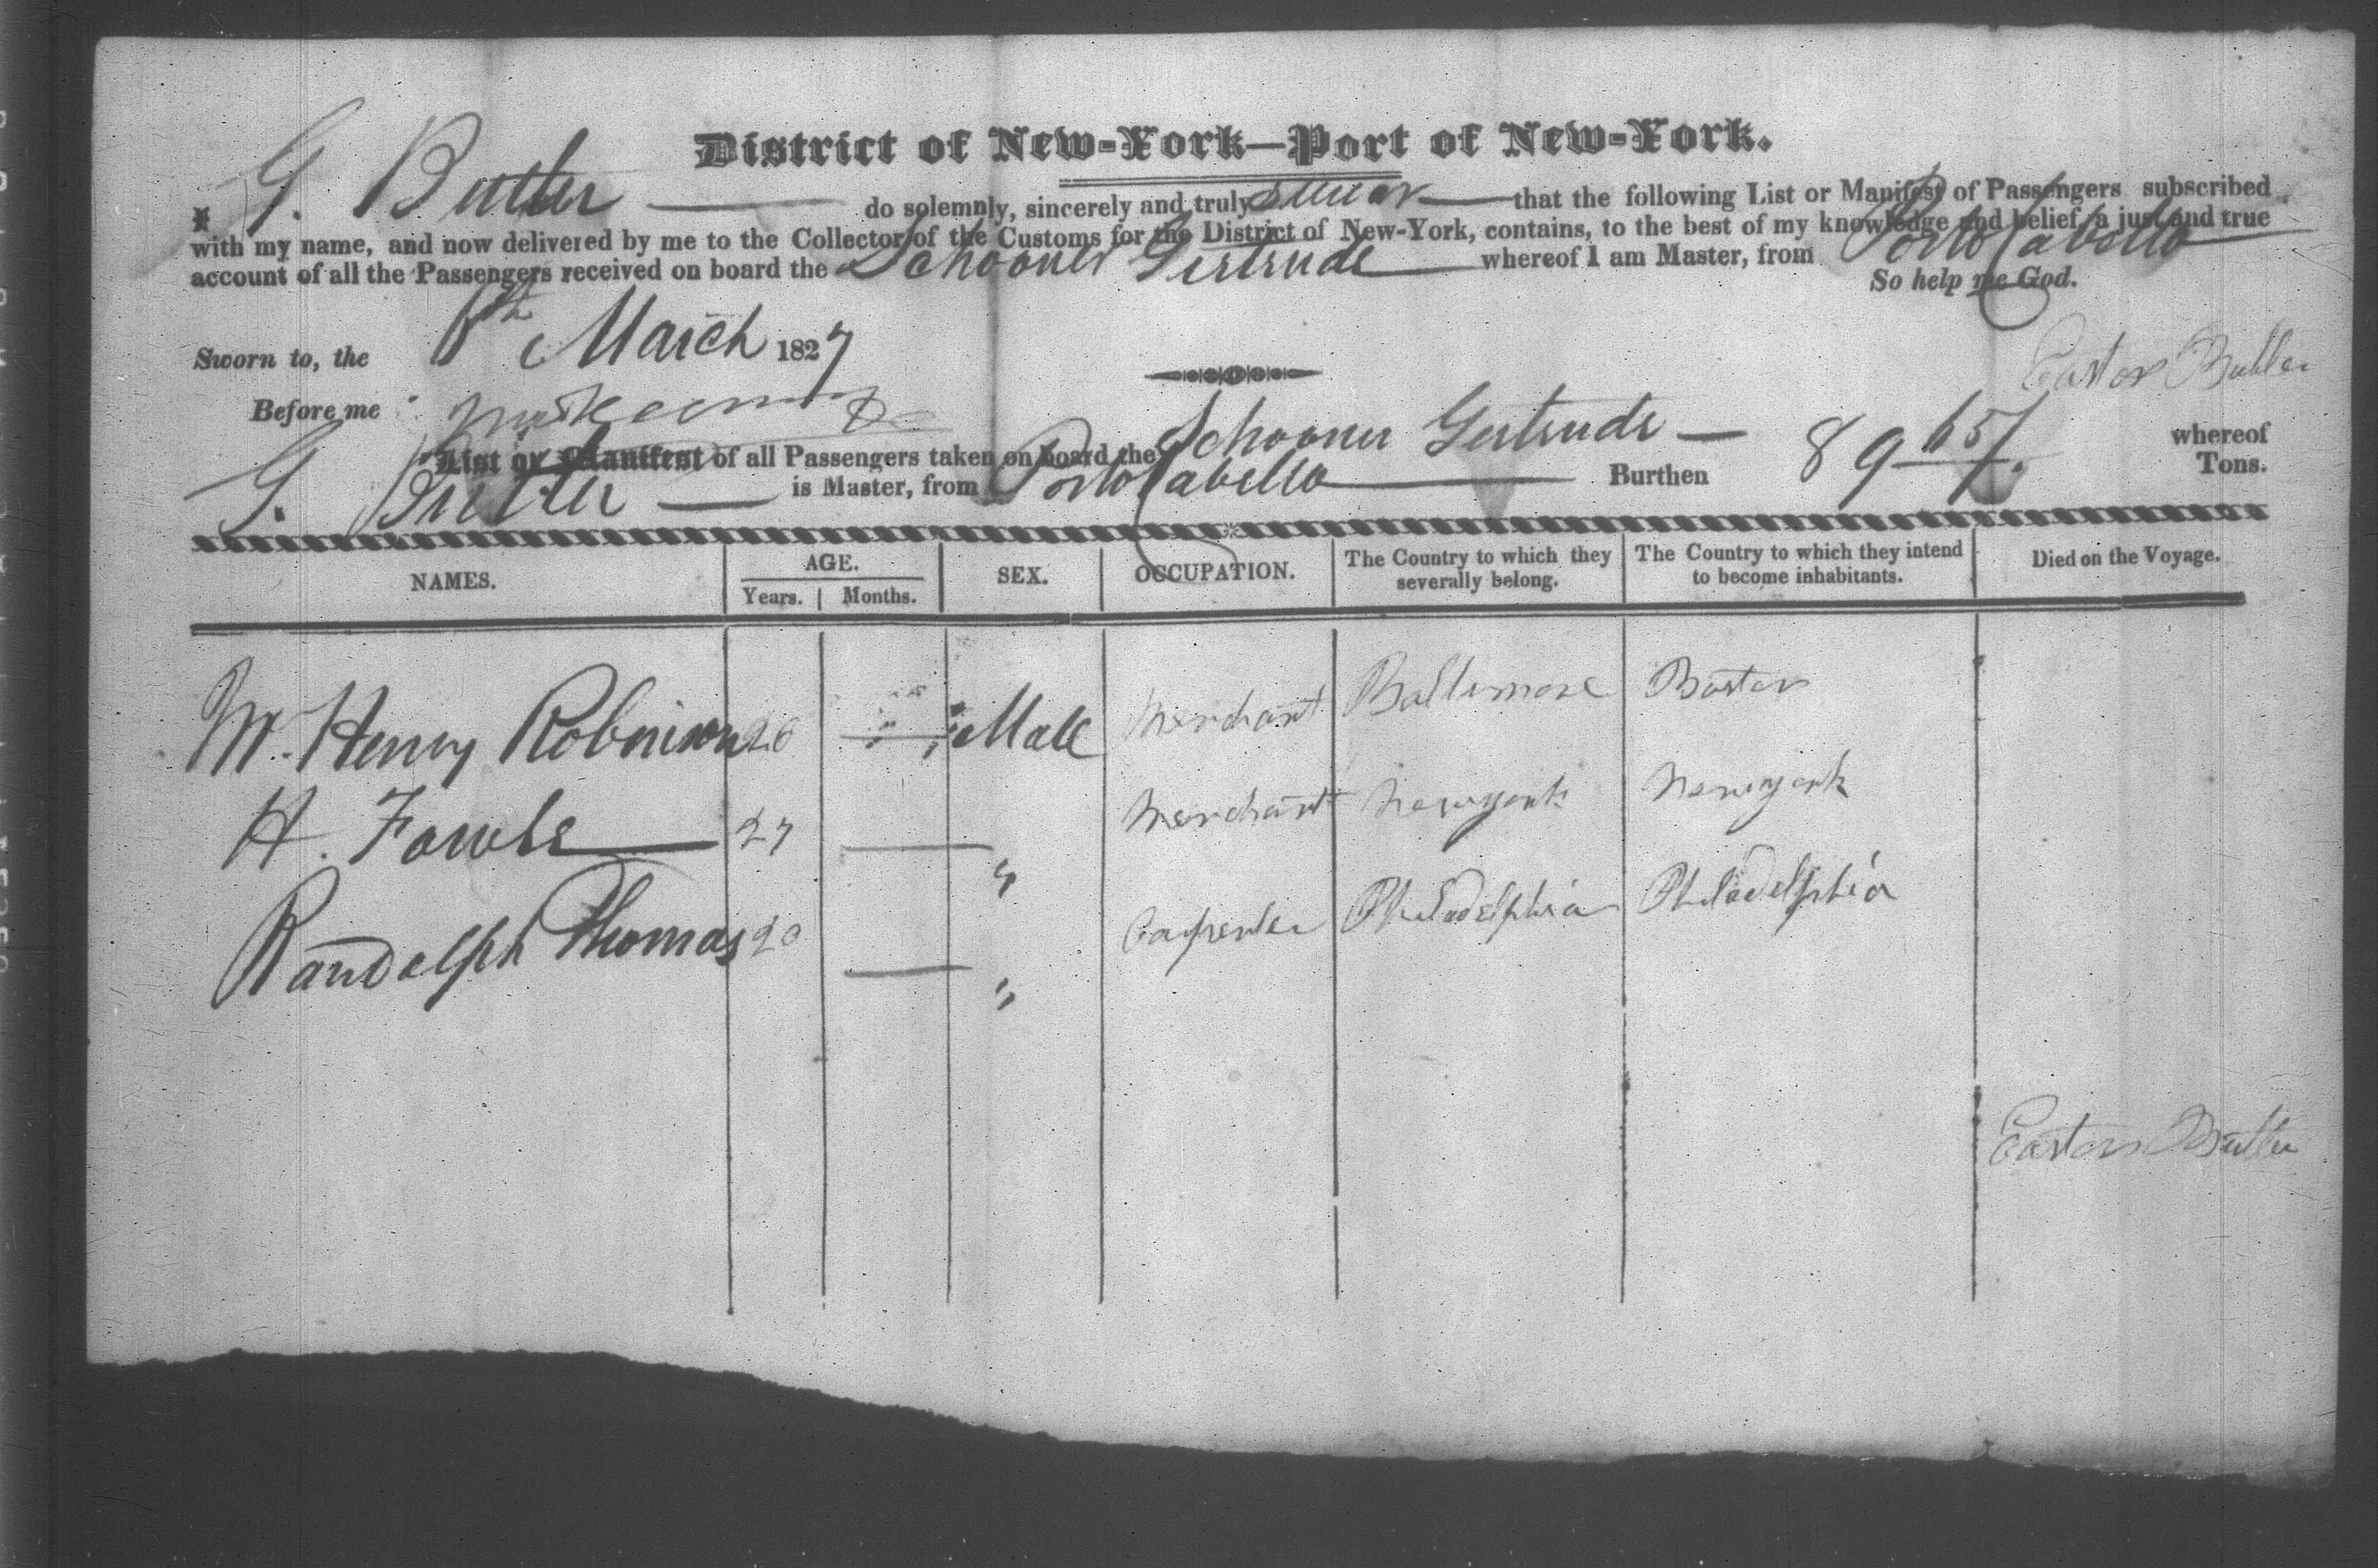 District of New-York—Port of New-York.
I, G. Butler do solemnly, sincerely and truly swear that the following List or Manifest of Passengers subscribed
with my name, and now delivered by me to the Collector of the Customs for the District of New-York, contains, to the best of my knowledge and belief, a just and true
account of all the Passengers received on board the Schooner Gertrude whereof I am Master, from Porto Cabello
So help me God.
Sworn to, the March 1827
Easton Butler
Before me
List or Manifest of all Passengers taken on board the Schooner Gertrude whereof
G. Butler is Master, from Porto Cabello Burthen 89 65/ Tons.
NAMES. AGE. Years. Months. SEX. OCCUPATION. The Country to which they severally belong. The Country to which they intend to become inhabitants. Died on the Voyage.
Mr. Henry Robinson 26 — Male Merchant Baltimore Boston
H. Fowle 27 — " Merchant Newyork Newyork
Randolph Thomas 20 — " Carpenter Philadelphia Philadelphia
Easton Butler